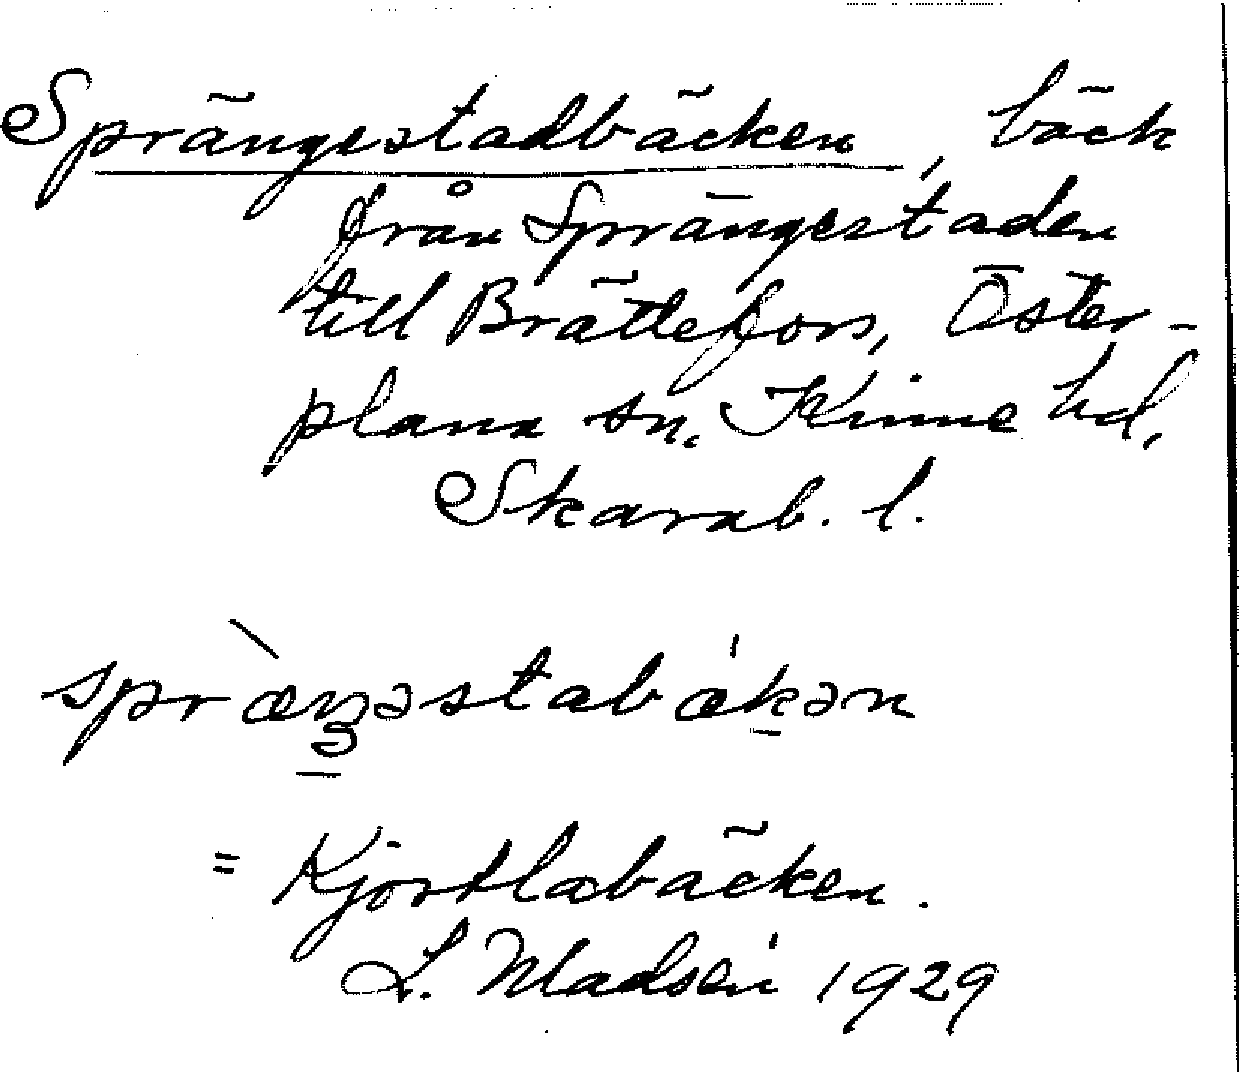 Sprängestadbäcken, bäck
från Sprängestaden
till Brättefors, Öster-
plana sn, Kinne hd,
Skarab. l.
spræ̀ŋəstabækən
= Kjortlabäcken.
L. Madsén 1929